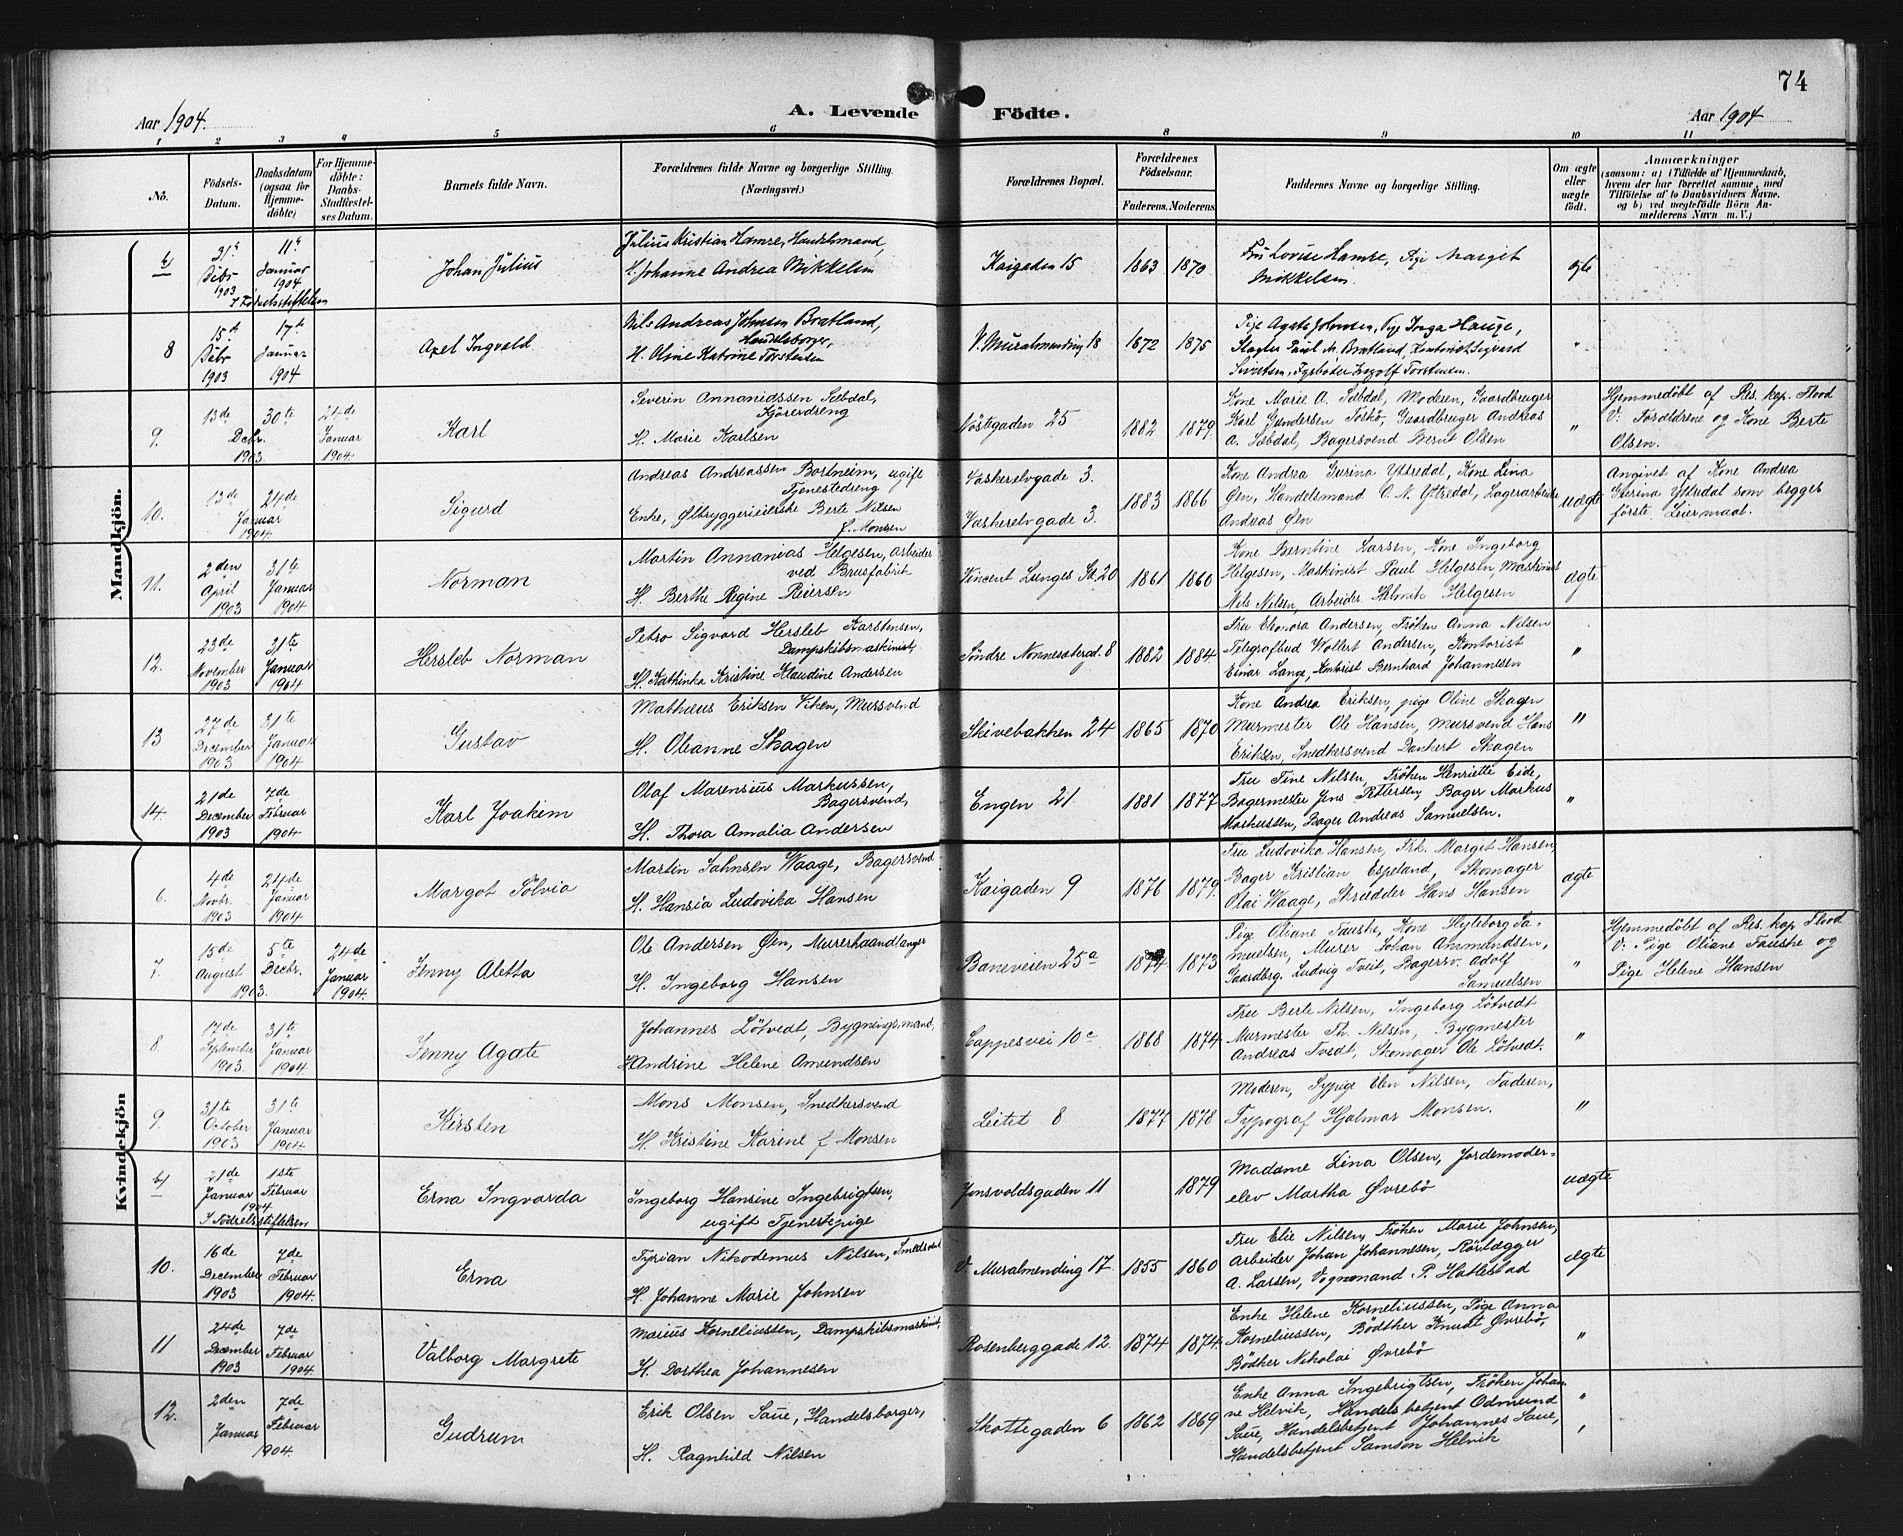 74
Aar 1904.
A. Levende Födte.
Aar 1904
1 2 3 4 5 6 8 9 10 11
No.
Födsels-Datum.
Daabsdatum (ogsaa for Hjemme-döbte)
For Hjemme-döbte: Daabs-Stadfæstel-ses Datum.
Barnets fulde Navn.
Forældrenes fulde Navne og borgerlige Stilling.
(Næringsvei.)
Forældrenes Bopæl.
Forældrenes Födselsaar.
Faderens. Moderens.
Faddernes Navne og borgerlige Stilling.
Om ægte eller uægte födt.
Anmærkninger
(saasom: a) i Tilfælde af Hjemmedaab,
hvem der har forrettet samme, med
Tilföielse af to Daabsvidners Navne,
og b) ved uægtefödte Börn An-
melderens Navn m. V.)
Mandkjön.
b) 31te Decbr 1903 11te Januar 1904
I Fødselsstiftelsen
Johan Julius
Julius Kristian Hamre, Handelsmand,
H. Johanne Andrea Mikkelsen
Kaigaden 15 1863 1870
Fru Lovise Hamre, Pige Margit
Mikkelsen.
ægte
8 15de Decbr 1903 17de Januar 1904
Axel Ingvald
Nils Andreas Johnsen Bratland,
Handelsborger,
H. Oline Katrine Torstensen
V. Muralmending 18 1872 1875
Pige Agate Johnsen, Pige Inga Hauge,
Slagter Paul M. Bratland, Kontorist Sigvard
Sivertsen, Fyrbøder Ingolf Torstensen.
"
9. 13de Decbr. 1903 30te 24de Januar 1904.
Karl
Severin Annanidssen Sæbdal,
Kjøredreng
H. Marie Karlsen
Nøstegaden 25 1882 1879.
Kone Marie A. Sæbdal, Moderen, Gaardbruger
Karl Gundersen Foskö, Gaardbruger Andreas
A. Sæbdal, Bagersvend Bernt Olsen
"
Hjemmedöbt af Res. kap. Flood
V: Forældrene og Kone Berte
Olsen.
10. 13de 24de Januar 1904
Sigurd
Andreas Andreassen Bortneim, ugift
Tjenestedreng
Enke, Ølbryggerieierske Berte Nilsen
f. Monsen
Vaskerelvgade 3.
Vaskerelvgade 3.
1883 1866
Kone Andrea Gurina Yttredal, Kone Lina
Øen, Handelsmand O. N. Yttredal, Lagerarbeider
Andreas Øen
uægte
Angivet af Kone Andrea
Gurina Yttredal som begges
förste Leiermaal.
11. 2den April 1903 31te Januar 1904
Norman
Martin Annanias Helgesen, Arbeider
ved Brusfabrik
H. Berthe Regine Reiersen
Vincent Lunges Gd. 20 1861 1860
Kone Berntine Larsen, Kone Ingeborg
Helgesen, Maskinist Paul Helgesen, Maskinist
Nils Nilsen, Arbeider Helmik Helgesen
ægte
12. 23de November 1903 31te Januar 1904
Hersleb Norman
Petro Sigvard Hersleb Karstensen,
Dampskibsmaskinist,
H. Kathinka Kristine Klaudine Andersen
Søndre Nonnesætergd. 8 1882 1884.
Fru Eleonora Andersen, Frøken Anna Nilsen
Telegrafbud Wollert Andersen, Kontorist
Einar Lange, Kontorist Bernhard Johannesen
"
13 27de December 1903 31te Januar 1904.
Gustav
Mathæus Eriksen Viken, Mursvend
H. Oleanne Skagen
Skivebakken 24 1865 1870
Kone Andrea Eriksen, pige Oline Skagen
Murmester Ole Hansen, Mursvend Hans
Eriksen, Snedkersvend Dankert Skagen
"
14. 21de December 1903 7de Februar 1904
Karl Joakim
Olaf Marensius Markussen,
Bagersvend,
H. Thora Amalia Andersen
Engen 21 1881 1877
Fru Tine Nilsen, Frøken Henriette Eide,
Bagermester Jens Pettersen, Bager Markus
Markussen, Bager Andreas Samuelsen.
"
Kvindekjön
6. 4de Novbr. 1903 24de Januar 1904
Margot Sölvia
Martin Johnsen Waage, Bagersvend
H. Hansia Ludovika Hansen
Kaigaden 9 1876 1879.
Fru Ludovika Hansen, Frk. Margit Hansen,
Bager Kristian Espeland, Skomager
Olai Waage, Skrædder Hans Hansen
ægte
7. 15de August 1903. 5te Decbr. 24de Januar 1904.
Jenny Aletta
Ole Andersen Øen, Murerhaandlanger
H. Ingeborg Hansen
Baneveien 25a 1874 1873
Pige Oliane Fauske, Kone Hyleborg Sa-
muelsen, Murer Johan Ammundsen,
Gaardbrg. Ludvig Tveit, Bagersv. Adolf
Samuelsen
"
Hjemmedöbt af Res. kap. Flood
V: Pige Oliane Fauske og
Pige Helene Hansen
8. 17de September 1903. 31te Januar 1904
Jenny Agate
Johannes Lötvedt, Bygningsmand,
H. Andrine Helene Amundsen
Cappesvei 10c 1868 1874.
Fru Berte Nilsen, Ingeborg Lötvedt
Murmester Th. Nilsen, Bygmester
Andreas Tvedt, Skomager Ole Lötvedt.
"
9. 31te October 1903 31te Januar 1904
Kirsten
Mons Monsen, Snedkersvend
H. Kristine Karine f. Monsen
Leitet 8 1877 1878
Moderen, Sypige Elen Nilsen, Faderen,
Typograf Hjalmar Monsen.
"
b) 21de Januar 1904 1ste Februar
I Födselsstiftelsen
Erna Ingvarda
Ingeborg Hansine Ingebrigtsen,
ugift Tjenestepige
Jonsvoldsgaden 11 1879
Madame Lina Olsen, Jordemoder-
elev Martha Øvrebö
uægte
10. 16de December 1903 7de Februar 1904.
Erna
Tyrian Nikodemus Nilsen, Smedsvend
H. Johanne Marie Johnsen
V. Muralmending 17 1855 1860
Fru Elie Nilsen, Frøken Marie Johnsen,
Arbeider Johan Johannesen, Rörlægger
A. Larsen, Vognmand P. Hatlestad
ægte
11 24de December 1903 7de Februar 1904
Valborg Margrete
Marius Korneliussen, Dampskibsmaskinist,
H. Dorthea Johannesen
Rosenberggade 12. 1874 1874.
Enke Helene Korneliussen, Pige Anna
Korneliussen, Bödtker Knudt Øvrebö,
Bödker Nikolai Øvrebö
"
12. 2den Januar 1904 7de Februar
Gudrum
Erik Olsen Saue, Handelsborger,
H. Ragnhild Nilsen
Skottegaden 6 1862 1869
Enke Anna Ingebrigtsen, Frøken Johan-
ne Helvik, Handelsbetjent Odmund
Saue, Handelsbetjent Johannes Saue,
Handelsbetjent Samson Helvik
"